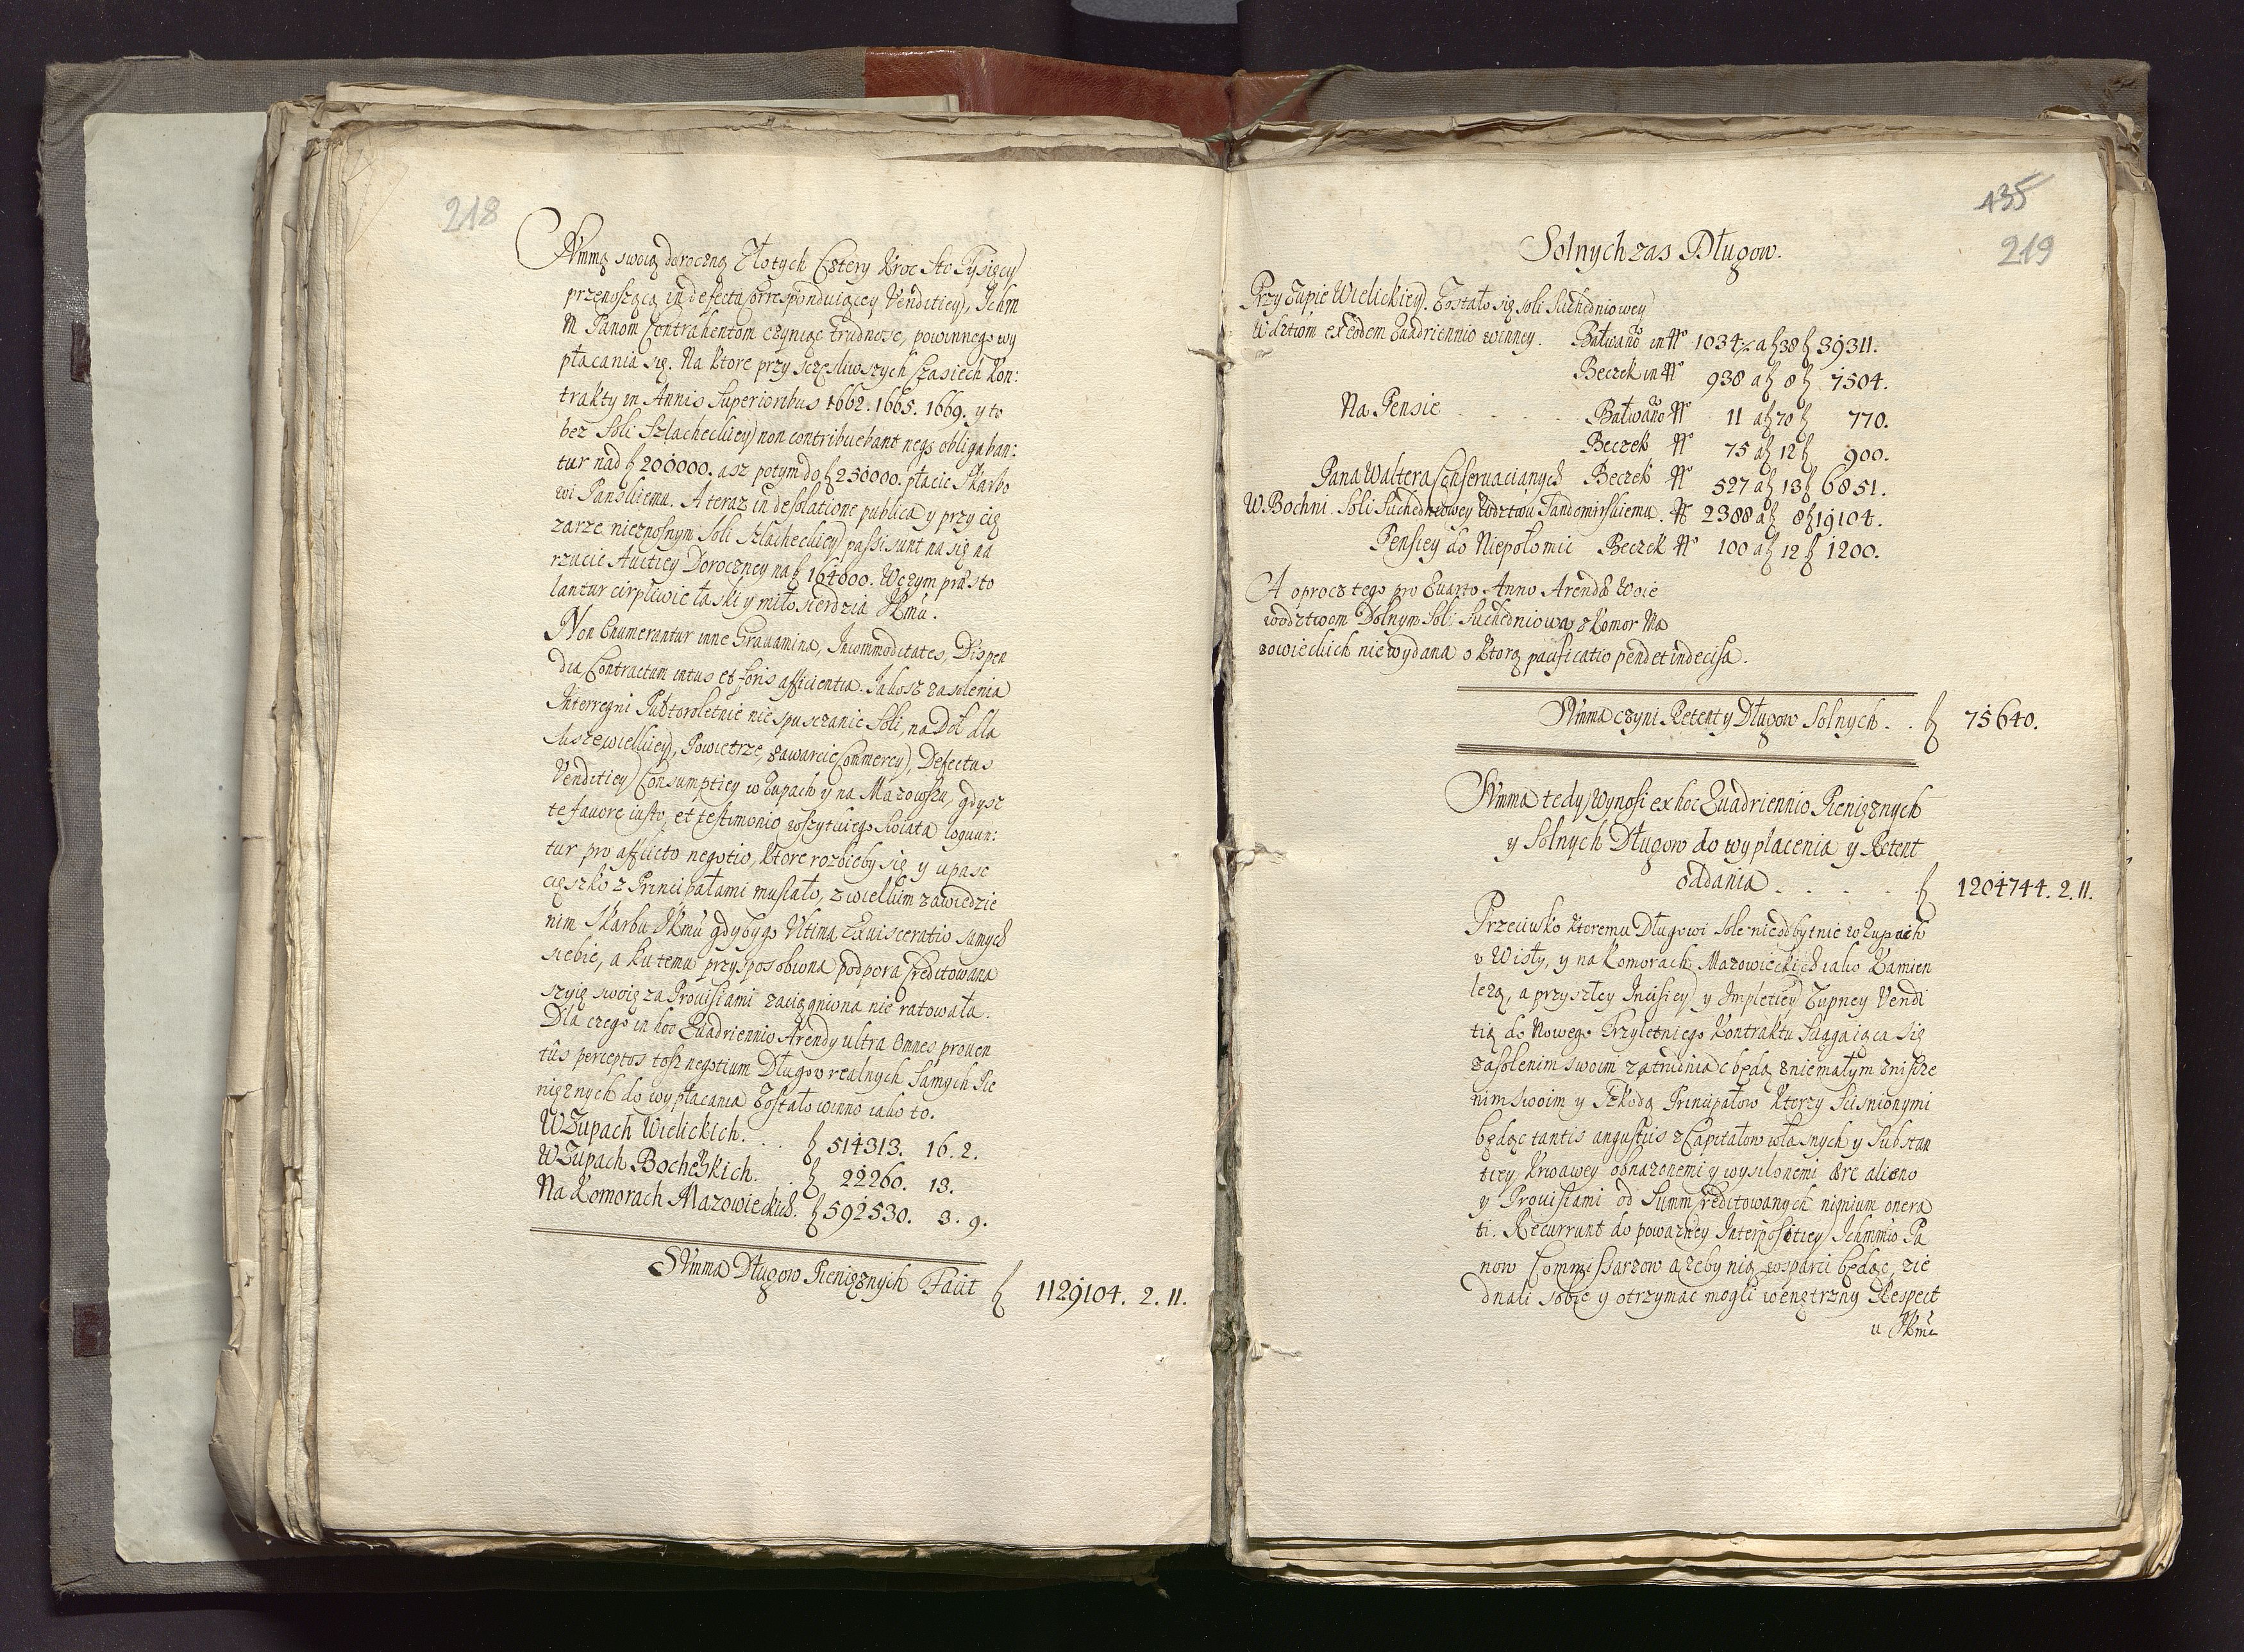 218
Summą swoią doroczną Złotych Cztery kroc Sto Tysięcy
przenoszącą in defectu corresponduiącey Venditiey, Ichm
M Panom Contrahentom czyniąc trudnosc, powinnego wy
płacania się. Na ktore przy szczesliwszych Czasiech Kon:
trakty in Annis Superioribus 1662. 1665. 1669. y to
bez Soli Szlacheckiey non contribuebant neqз obligaban:
tur nad f 200000. asz potym do f 250000. płacic Skarbo
wi Panskiemu. A teraz in desolatione publica y przy cię
zarze nieznosnym Soli Szlacheckiey passi sunt na się na
rzucic Auctiey Doroczney na f 164000. W czym præsto
lantur cirpliwie łaski y miłosierdzia JKmci.
Non Enumerantur inne Grauamina, Incommoditates, Dispen
dia Contractum intus et foris afficientia. Iakosz zasolenia
Interregni Połtoroletnie nie spusczanie Soli, na Doł dla
Susze wielkiey, Powietrze, zawarcie Commercy, Defectus
Venditiey Consumptiey w Zupach y na Mazowszu, gdysz
te fauore iusto, et testimonio wszytkiego swiata loquun:
tur pro afflicto negotio, ktore rozbicby się y upasc
cięszko z Principałami musiało, z wielkim zawiedzie
nim Skarbu JKmci gdyby go Vltima Exuisceratio samych
siebie, a ku temu przysposobiona podpora Creditowana
szyią swoią za Prouisiami zaciągniona nie ratowała.
Dla czego in hoc Quadriennio Arendy ultra Omnes prouen
tus perceptos tosz negotium Długow realnych Samych Pie
nięznych do wypłacania Zostało winno iako to.
W Zupach Wielickich. . . f 514313. 16. 2.
W Zupach Bochenskich. . f 22260. 13.
Na Komorach Mazowieckich. f 592530. 3. 9.
Summa Długow Pienięznych Facit f 1129104. 2. 11.
135
219
Solnych zas Długow.
Przy Zupie Wielickiey. Zostało się soli Suchedniowey
Wdztwom ex eodem Quadriennio winney. Bałwanow in No 1034½ a f 38 f 39311.
Beczek in No 938 a f 8 f 7504.
Na Pensie - - - - Bałwanow No 11 a f 70 f 770.
Beczek No 75 a f 12 f 900.
Pana Waltera Conseruacianych Beczek No 527 a f 13 f 6851.
W Bochni. Soli Suchedniowey Wdztwu Sandomirskiemu. No 2388 a f 8 f 19104.
Pensiey do Niepołomic Beczek No 100 a f 12 f 1200.
A oprocz tego pro Quarto Anno Arendæ Woie
wodztwom Dolnym Sol Suchedniowa z Komor Ma
zowieckich nie wydana o ktorą pacificatio pendet indecisa.
Summa czyni Retenty Długow Solnych. . f 75640.
Summa tedy Wynosi ex hoc Quadriennio Pienięznych
y Solnych Długow do wypłacenia y Retent
oddania . - - - . f 1204744. 2. 11.
Przeciwko ktoremu Długowi Sole nieodbytnie w Zupach
v Wisły, y na Komorach Mazowieckich iako Kamien
lezą, a przyszłey Incisiey y Impletiey Zupney Vendi
tią do Nowego Trzyletniego Kontraktu Sciągaiąca się
zasolenim swoim zatrudniac będą z niemałym znisze
nim swoim y Szkodą Principałow ktorzy Scisnionymi
będąc tantis angustiis z Capitałow własnych y Substan
tiey krwawey obnazonemi y wysilonemi ære alieno
y Prouisiami od Summ Creditowanych nimium onera
ti. Recurrunt do powazney Interpositiey Ichmmciow Pa
now Commissarzow azeby nią wsparci będąc, zie
dnali sobie y otrzymac mogli wenętrzny Respect
u JKmci